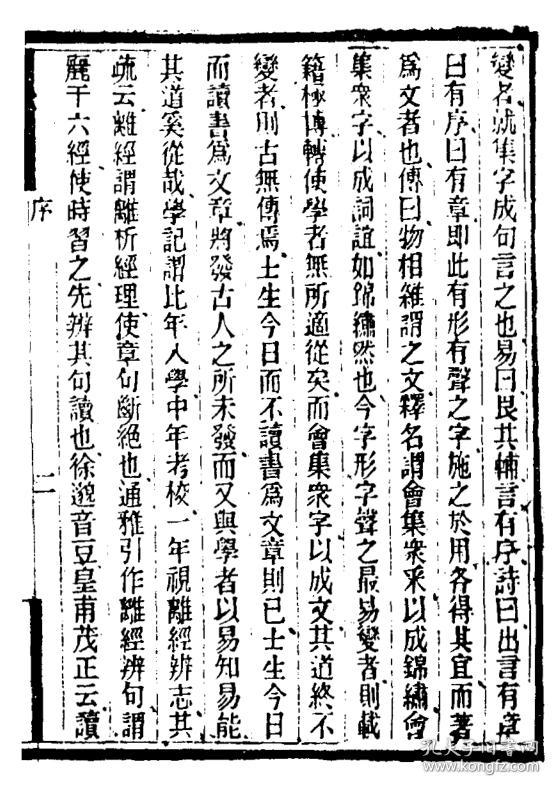 變者就集字成句言之也易曰艮其輔言有序詩曰出言有章
曰有序曰有章即此有形有聲之字施之於用各得其宜而著
爲文者也傳曰物相雜謂之文釋名謂會集衆采以成錦繡會
集衆字以成詞誼如錦繡然也今字形字聲之最易變者則載
籍極博轉使學者無所適從矣而會集衆字以成文其道終不
變者則古無傳焉士生今日而不讀書爲文章則已士生今日
而讀書爲文章將發古人之所未發而又與學者以易知易能
其道奚從哉學記謂比年入學中年考校一年視離經辨志其
疏云離經謂離析經理使章句斷絕也通雅引作離經辨句謂
麗于六經使時習之先辨其句讀也徐邈音豆皇甫茂正云讀
序
二
孔夫子旧书网
www.kongfz.com